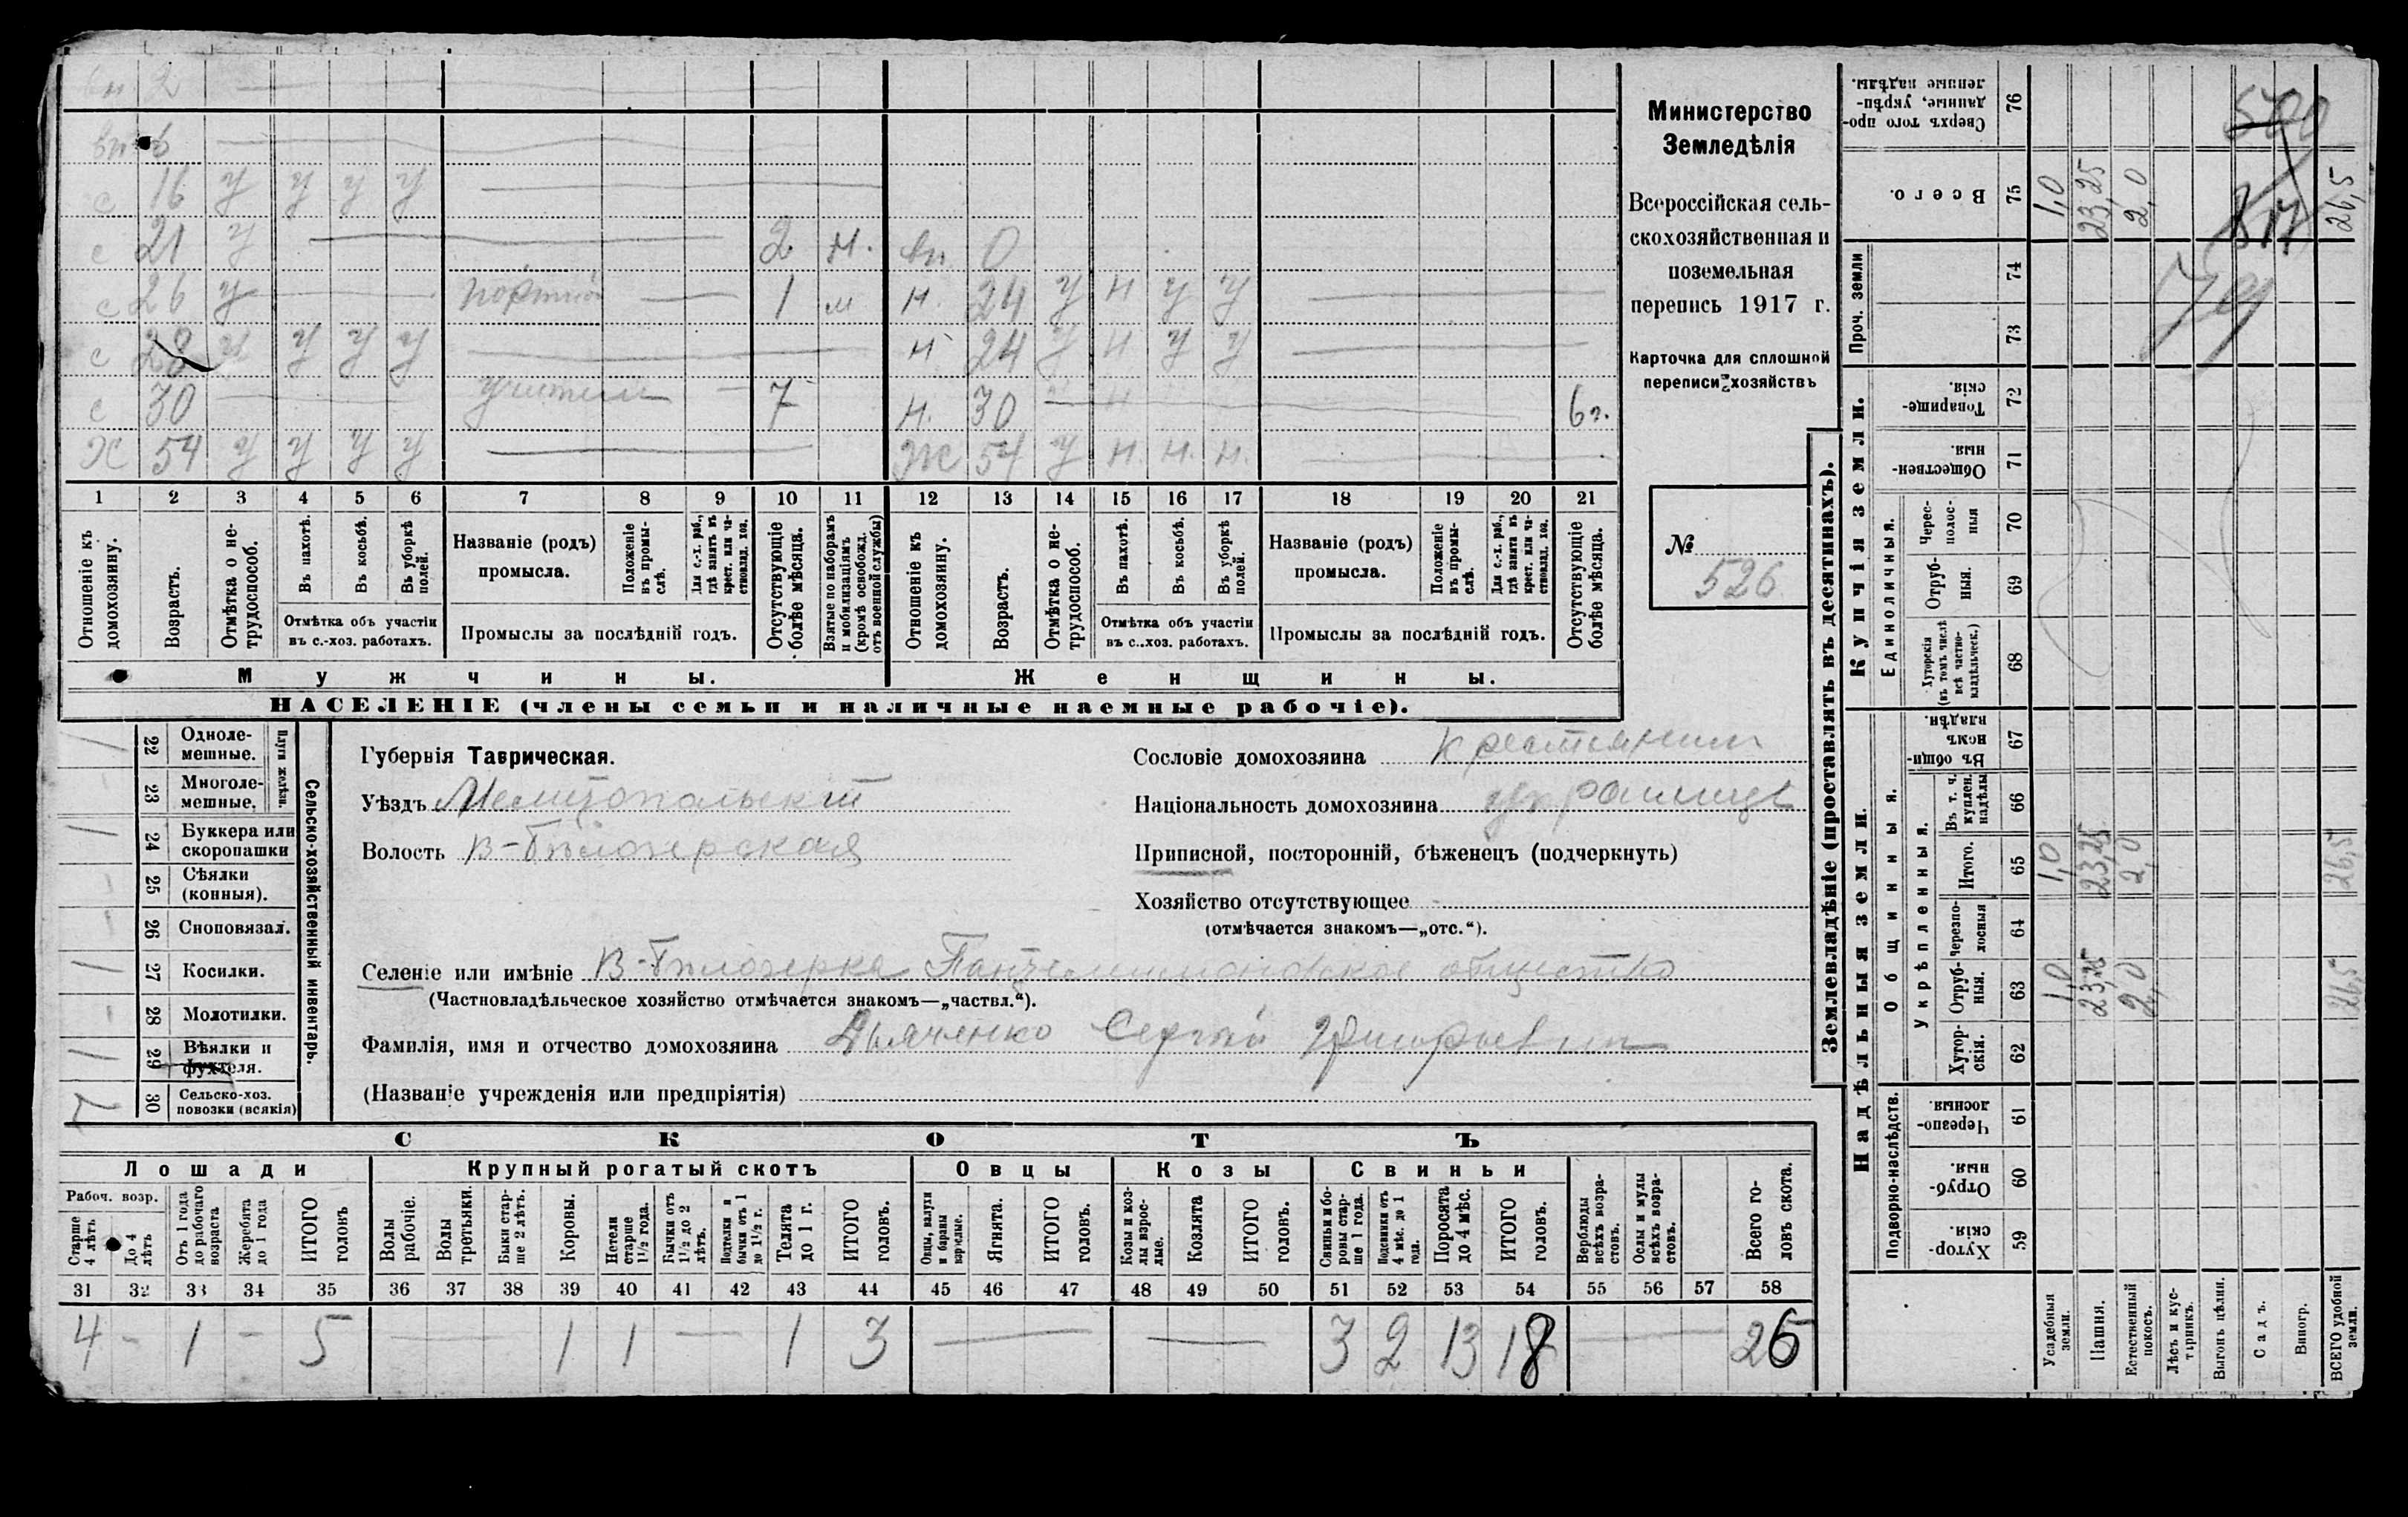 вн 2
вн 6
с 16 у у у у
с 21 у 2 м. вн. 0
с 26 у портной 1 м н. 24 у н у у
с 28 у у у у н 24 у н у у
с 30 учитель 7 н. 30 н 6 г.
Ж 54 у у у у Ж 54 у н. н. н.
1 2 3 4 5 6 7 8 9 10 11 12 13 14 15 16 17 18 19 20 21
Отношеніе къ домохозяину.
Возрастъ.
Отмѣтка о нетрудоспособ.
Въ пахотѣ.
Въ косьбѣ.
Въ уборкѣ полей.
Отмѣтка объ участіи
въ с.-хоз. работахъ.
Названіе (родъ)
промысла.
Положеніе въ промыслѣ.
Для с.-х. раб., гдѣ занятъ въ крест. или частновлад. хоз.
Промыслы за послѣдній годъ.
Отсутствующіе болѣе мѣсяца.
Взятые по наборамъ и мобилизаціямъ (кромѣ освобожд. отъ военной службы)
Отношеніе къ домохозяину.
Возрастъ.
Отмѣтка о нетрудоспособ.
Въ пахотѣ.
Въ косьбѣ.
Въ уборкѣ полей.
Отмѣтка объ участіи
въ с..хоз. работахъ.
Названіе (родъ)
промысла.
Положеніе въ промыслѣ.
Для с.-х. раб., гдѣ занята въ крест. или частновлад. хоз.
Промыслы за послѣдній годъ.
Отсутствующіе болѣе мѣсяца.
Мужчины.
Женщины.
НАСЕЛЕНІЕ (члены семьи и наличные наемные рабочіе).
Министерство
Земледѣлія
Всероссійская сель-
скохозяйственная и
поземельная
перепись 1917 г.
Карточка для сплошной
переписи хозяйствъ
№
526
Сельско-хозяйственный инвентарь.
Плуги желѣзн.
/ 22 Одноле-
мешные.
23 Многоле-
мешные.
/ 24 Буккера или
скоропашки
25 Сѣялки
(конныя).
26 Сноповязал.
/ 27 Косилки.
28 Молотилки.
/ 29 Вѣялки и
фухтеля.
7 30 Сельско-хоз.
повозки (всякія)
Губернія Таврическая.
Уѣздъ Мелитопольскій
Волость В-Бѣлозерская
Сословіе домохозяина крестьянин
Національность домохозяина украинец
Приписной, посторонній, бѣженецъ (подчеркнуть)
Хозяйство отсутствующее
(отмѣчается знакомъ—„отс.“).
Селеніе или имѣніе В-Бѣлозерка Пантелимоновское общество
(Частновладѣльческое хозяйство отмѣчается знакомъ—„частвл.“).
Фамилія, имя и отчество домохозяина Дьяченко Сергей Григорьевич
(Названіе учрежденія или предпріятія)
СКОТЪ
Лошади
Крупный рогатый скотъ
Овцы
Козы
Свиньи
Рабоч. возр.
Старше 4 лѣтъ
До 4 лѣтъ
Отъ 1 года до рабочаго возраста
Жеребята до 1 года
ИТОГО головъ
Волы рабочіе.
Волы третьяки.
Быки старше 2 лѣтъ.
Коровы.
Нетели старше 1½ года.
Бычки отъ 1½ до 2 лѣтъ.
Подтелки и бычки отъ 1 до 1½ г.
Телята до 1 г.
ИТОГО головъ.
Овцы, валухи и бараны взрослые.
Ягнята.
ИТОГО головъ.
Козы и козлы взрослые.
Козлята
ИТОГО головъ.
Свиньи и боровы старше 1 года.
Подсвинки отъ 4 мѣс. до 1 года.
Поросята до 4 мѣс.
ИТОГО головъ.
Верблюды всѣхъ возрастовъ.
Ослы и мулы всѣхъ возрастовъ.
Всего головъ скота.
31 32 33 34 35 36 37 38 39 40 41 42 43 44 45 46 47 48 49 50 51 52 53 54 55 56 57 58
4 - 1 - 5 1 1 1 3 3 2 13 18 26
Землевладѣніе (проставлять въ десятинахъ).
Надѣльныя земли.
Купчія земли.
Проч. земли
Подворно-наслѣдств.
Общинныя.
Укрѣпленныя.
Единоличныя.
Сверхъ того проданные, укрѣпленные надѣлы. 76
Всего. 75 1,0 23,25 2,0 26,5
74
73
Товарищескія. 72
Общественныя. 71
Чересполосныя 70
Отрубныя. 69
Хуторскія (въ томъ числѣ всѣ частновладѣльческ.) 68
Въ общинномъ владѣн. 67
Въ т. ч. куплен. надѣлы 66
Итого. 65 1,0 23,25 2,0 26,5
Черезполосныя 64
Отрубныя. 63 1,0 23,25 2,0 26,5
Хуторскія. 62
Черезполосныя. 61
Отрубныя. 60
Хуторскія. 59
Усадебныя земли.
Пашня.
Естественный покосъ.
Лѣсъ и кустарникъ.
Выгонъ цѣлин.
Садъ.
Виногр.
ВСЕГО удобной земли.
500
817
79